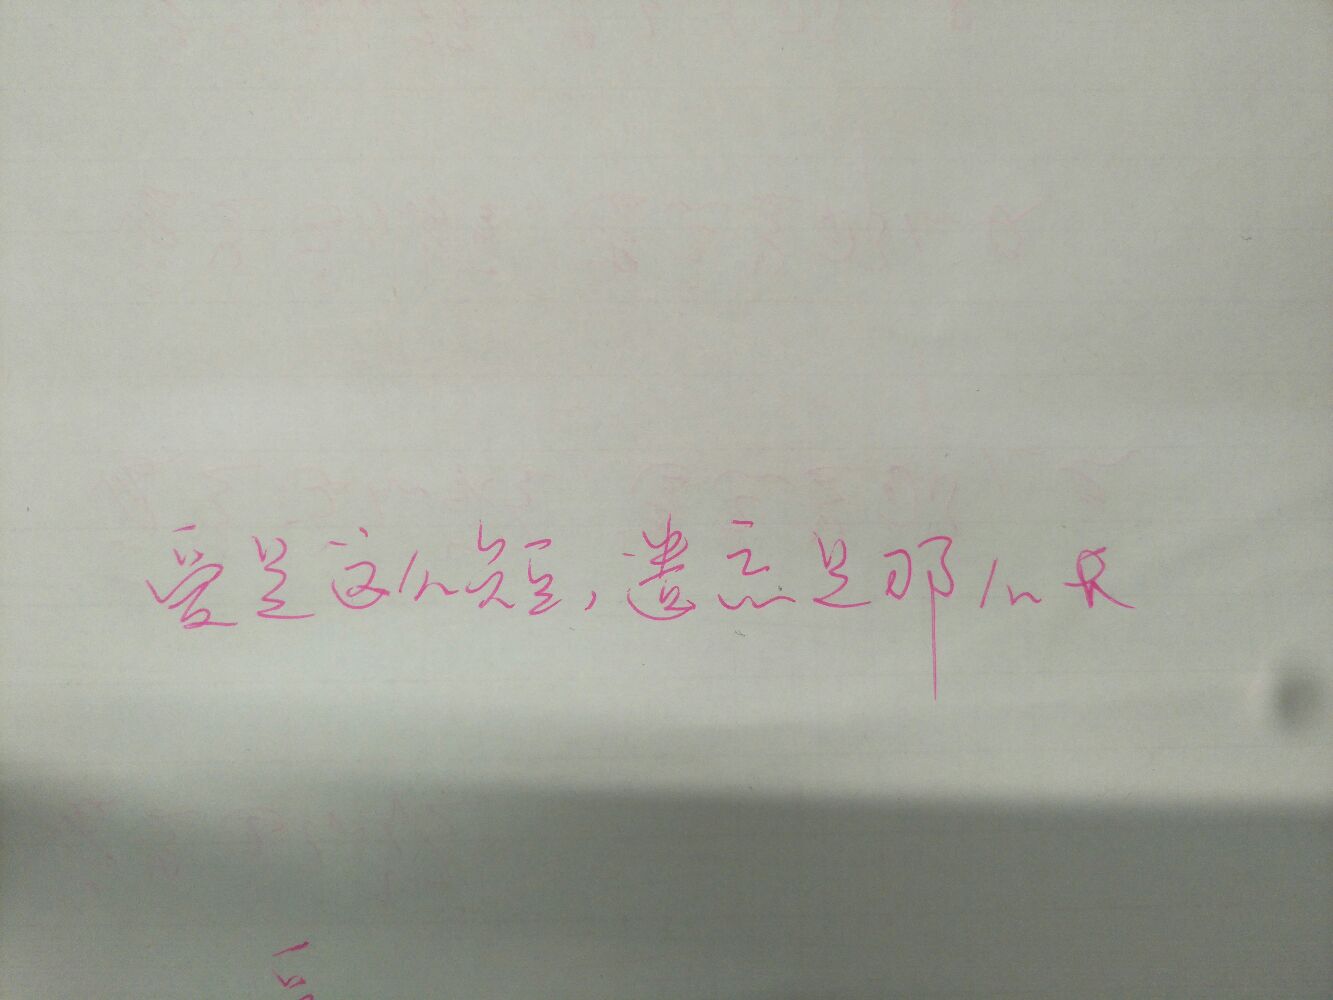 爱是这么短，遗忘是那么长